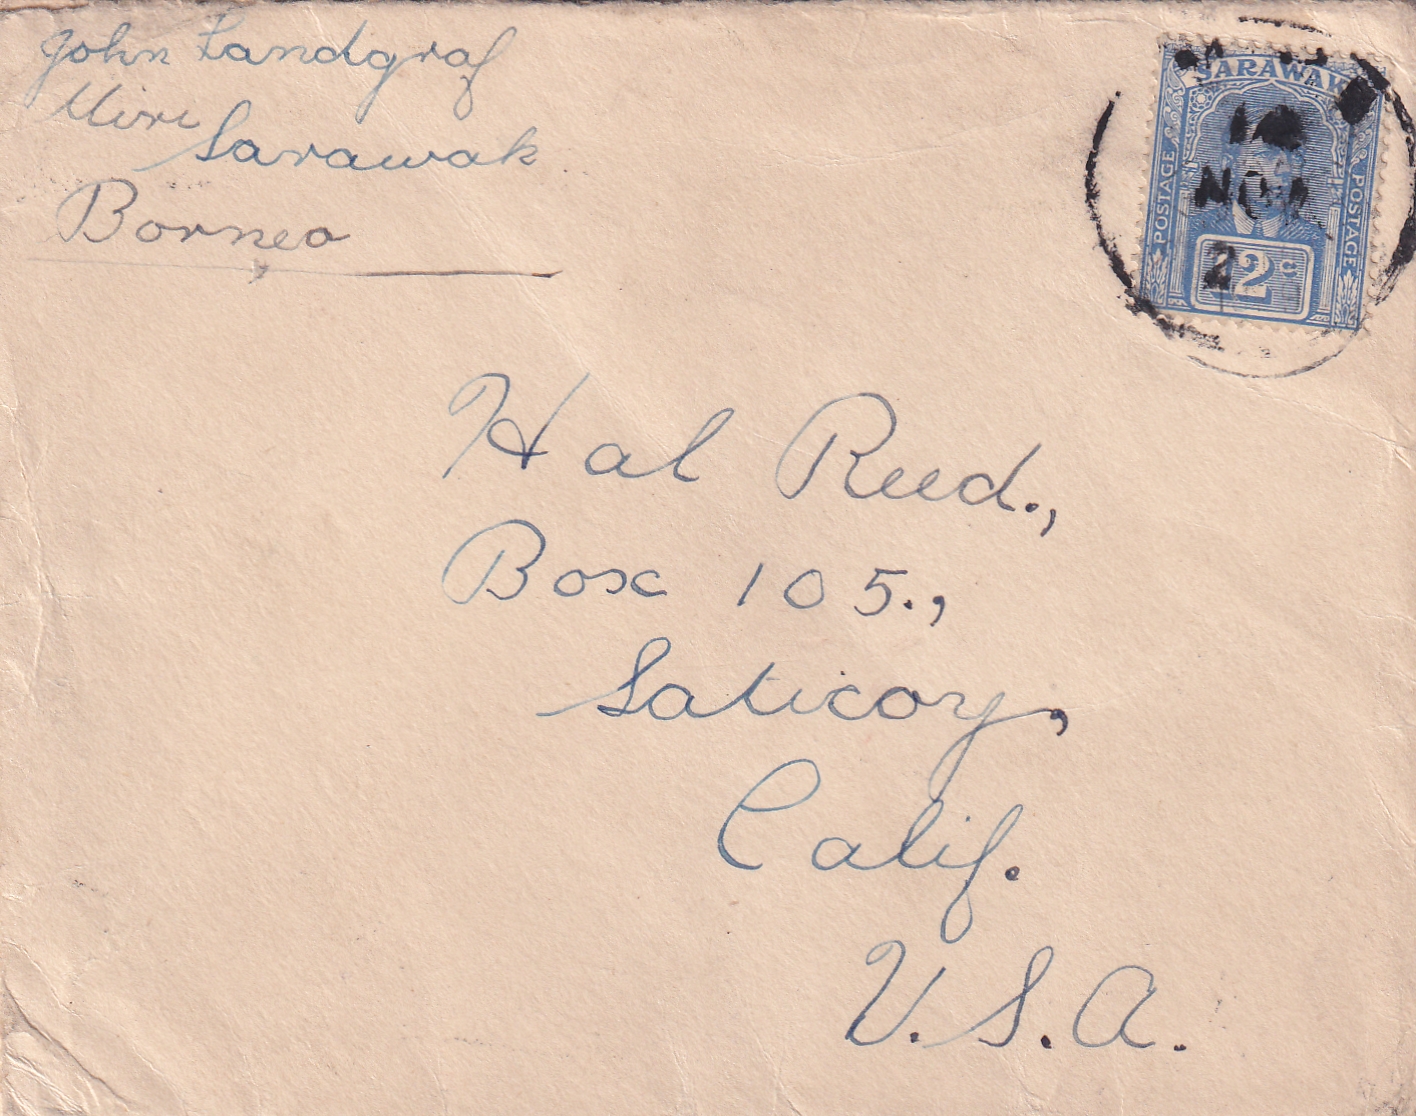 John Landgraf
Miri
Sarawak
Borneo
SARAWAK
POSTAGE
POSTAGE
12c
NOV
2
Hal Reed.,
Box 105.,
Saticoy,
Calif.
U.S.A.